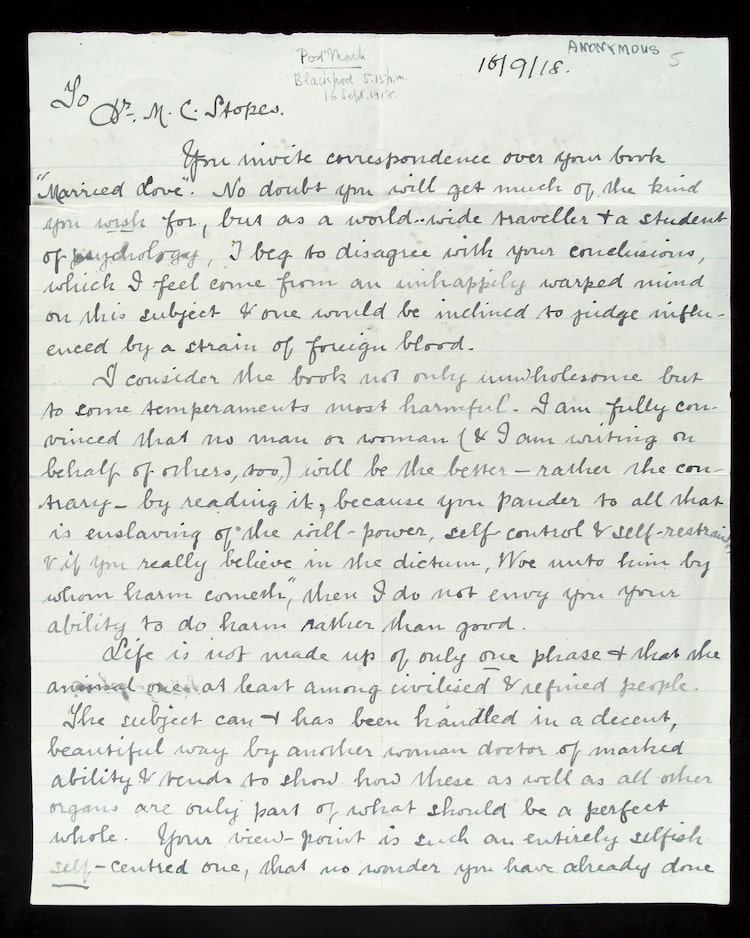 ANONYMOUS 5
Post Mark
Blackpool 5.15 p.m.
16 Sept. 1918.
16/9/18.
To Dr. M. C. Stopes.
You invite correspondence over your book
"Married Love". No doubt you will get much of the kind
you wish for, but as a world-wide traveller & a student
of psychology, I beg to disagree with your conclusions,
which I feel come from an unhappily warped mind
on this subject & one would be inclined to judge influ-
enced by a strain of foreign blood.
I consider the book not only unwholesome but
to some temperaments most harmful. I am fully con-
vinced that no man or woman (& I am writing on
behalf of others, too,) will be the better – rather the con-
trary – by reading it, because you pander to all that
is enslaving of the will-power, self-control & self-restraint
& if you really believe in the dictum, "Woe unto him by
whom harm cometh", then I do not envy you your
ability to do harm rather than good.
Life is not made up of only one phase & that the
animal one, at least among civilised & refined people.
The subject can & has been handled in a decent,
beautiful way by another woman doctor of marked
ability & tends to show how these as well as all other
organs are only part of what should be a perfect
whole. Your view-point is such an entirely selfish
self-centred one, that no wonder you have already done